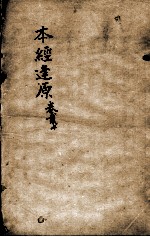 本經逢原
卷